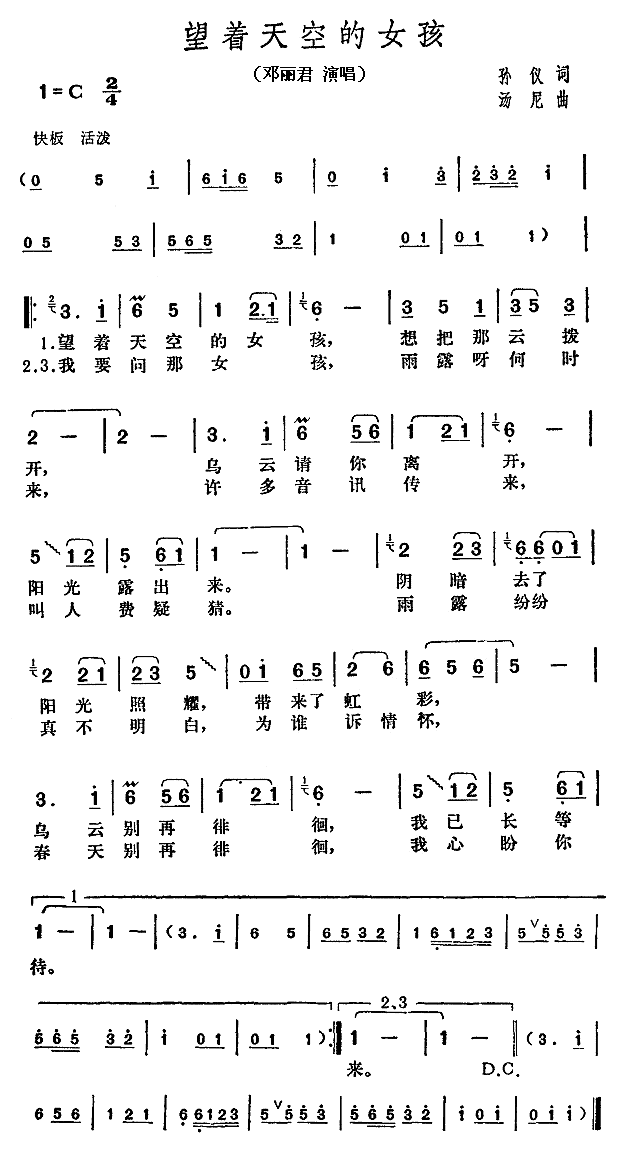 望着天空的女孩
（邓丽君 演唱）
1=C 2/4
孙 仪 词
汤 尼 曲
快板 活泼
（0 5 i | 6 i 6 5 | 0 i 3 | 2 3 2 i |
0 5 5 3 | 5 6 5 3 2 | 1 0 1 | 0 1 1 ）
3. i | 6 5 | 1 2.1 | 6 — | 3 5 1 | 3 5 3 |
1.望着天空的女孩，想把那云拨
2.3.我要问那女孩，雨露呀何时
2 — | 2 — | 3. i | 6 5 6 | 1 2 1 | 6 — |
开，乌云请你离开，
来，许多音讯传来，
5 1 2 | 5 6 1 | 1 — | 1 — | 2 2 3 | 6 6 0 1 |
阳光露出来。阴暗去了
叫人费疑猜。雨露纷纷
2 2 1 | 2 3 5 | 0 i 6 5 | 2 6 | 6 5 6 | 5 — |
阳光照耀，带来了虹彩，
真不明白，为谁诉情怀，
3. i | 6 5 6 | 1 2 1 | 6 — | 5 1 2 | 5 6 1 |
乌云别再徘徊，我已长等
春天别再徘徊，我心盼你
1
1 — | 1 — | （3. i | 6 5 | 6 5 3 2 | 1 6 1 2 3 | 5 5 5 3 |
待。
5 6 5 3 2 | i 0 1 | 0 1 1 ） :‖ 2、3 1 — | 1 — ‖ （3. i |
来。 D.C.
6 5 6 | 1 2 1 | 6 6 1 2 3 | 5 5 5 3 | 5 6 5 3 2 | i 0 i | 0 i i ）‖